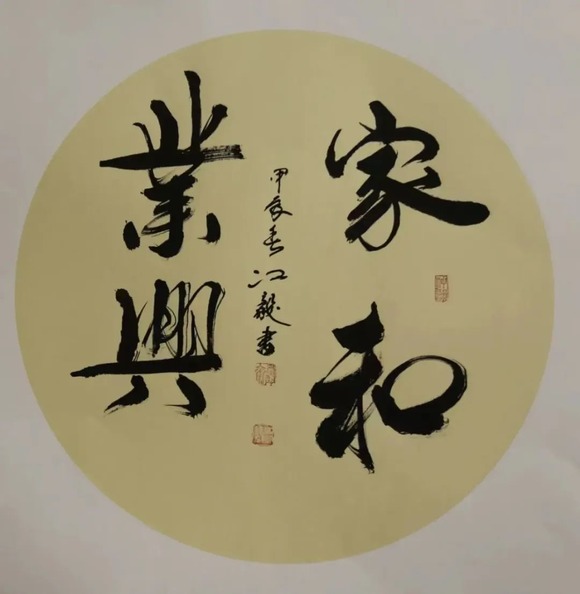 家和
業興
甲辰春江毅書